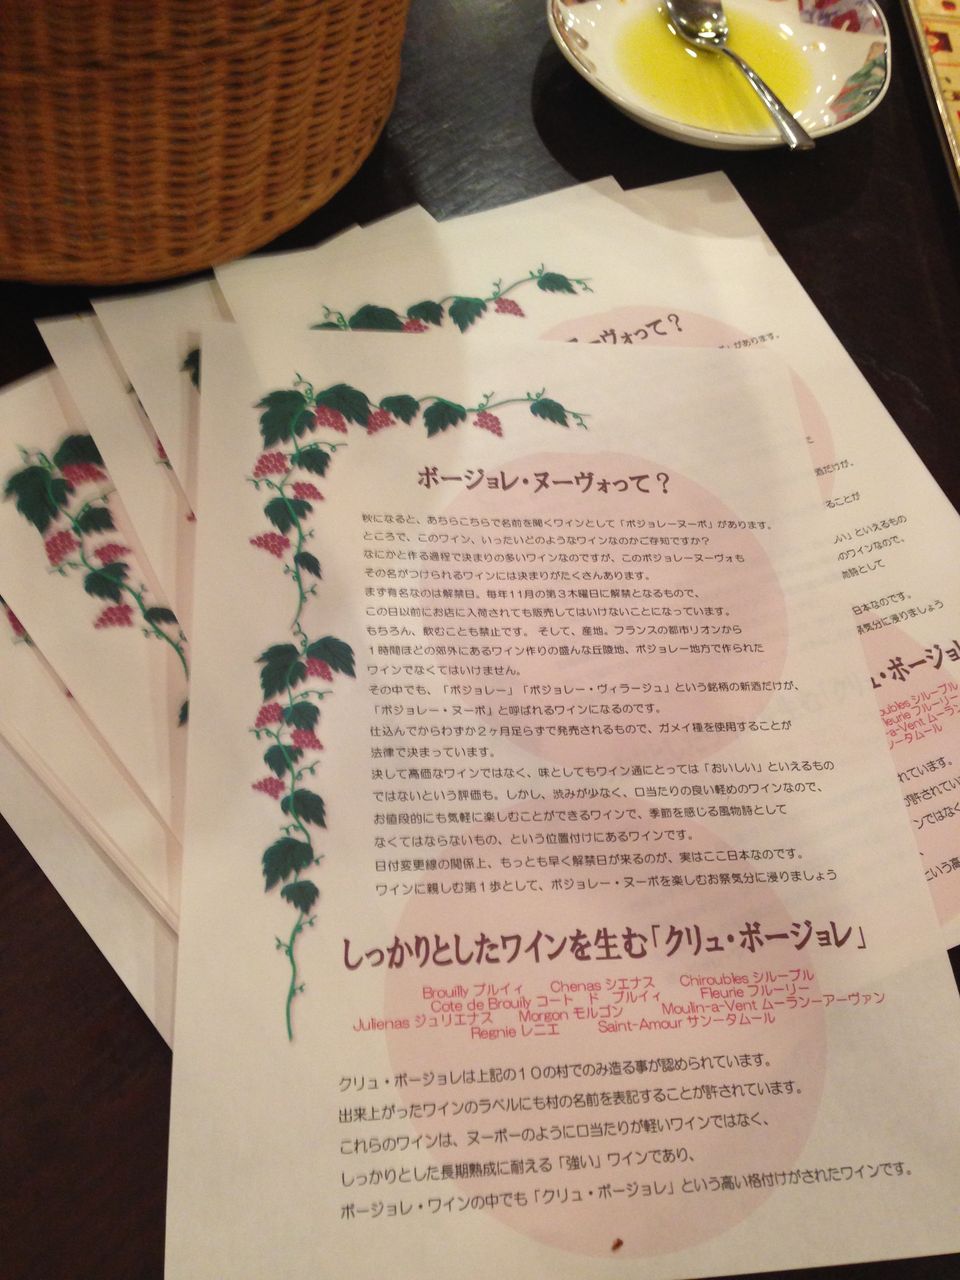 ボージョレ・ヌーヴォって？
秋になると、あちらこちらで名前を聞くワインとして「ボジョレーヌーボ」があります。
ところで、このワイン、いったいどのようなワインなのかご存知ですか？
なにかと作る過程で決まりの多いワインなのですが、このボジョレーヌーヴォも
その名がつけられるワインには決まりがたくさんあります。
まず有名なのは解禁日。毎年11月の第３木曜日に解禁となるもので、
この日以前にお店に入荷されても販売してはいけないことになっています。
もちろん、飲むことも禁止です。 そして、産地。フランスの都市リオンから
１時間ほどの郊外にあるワイン作りの盛んな丘陵地、ボジョレー地方で作られた
ワインでなくてはいけません。
その中でも、「ボジョレー」「ボジョレー・ヴィラージュ」という銘柄の新酒だけが、
「ボジョレー・ヌーボ」と呼ばれるワインになるのです。
仕込んでからわずか２ヶ月足らずで発売されるもので、ガメイ種を使用することが
法律で決まっています。
決して高価なワインではなく、味としてもワイン通にとっては「おいしい」といえるもの
ではないという評価も。しかし、渋みが少なく、口当たりの良い軽めのワインなので、
お値段的にも気軽に楽しむことができるワインで、季節を感じる風物詩として
なくてはならないもの、という位置付けにあるワインです。
日付変更線の関係上、もっとも早く解禁日が来るのが、実はここ日本なのです。
ワインに親しむ第１歩として、ボジョレー・ヌーボを楽しむお祭気分に浸りましょう
しっかりとしたワインを生む「クリュ・ボージョレ」
Brouilly ブルイィ Chenas シエナス Chiroubles シルーブル
Cote de Brouily コート ド ブルイィ Fleurie フルーリー
Julienas ジュリエナス Morgon モルゴン Moulin-a-Vent ムーランーアーヴァン
Regnie レニエ Saint-Amour サンータムール
クリュ・ボージョレは上記の１０の村でのみ造る事が認められています。
出来上がったワインのラベルにも村の名前を表記することが許されています。
これらのワインは、ヌーボーのように口当たりが軽いワインではなく、
しっかりとした長期熟成に耐える「強い」ワインであり、
ボージョレ・ワインの中でも「クリュ・ボージョレ」という高い格付けがされたワインです。
ーヴォって？
があります。
酒だけが、
ることが
い」といえるもの
のワインなので、
物詩として
日本なのです。
気分に浸りましょう
・ボージョ
oubles シルーブル
leurie フルーリー
-a-Vent ムーラン
ンータムール
れています。
が許されてい
ンではなく
という高